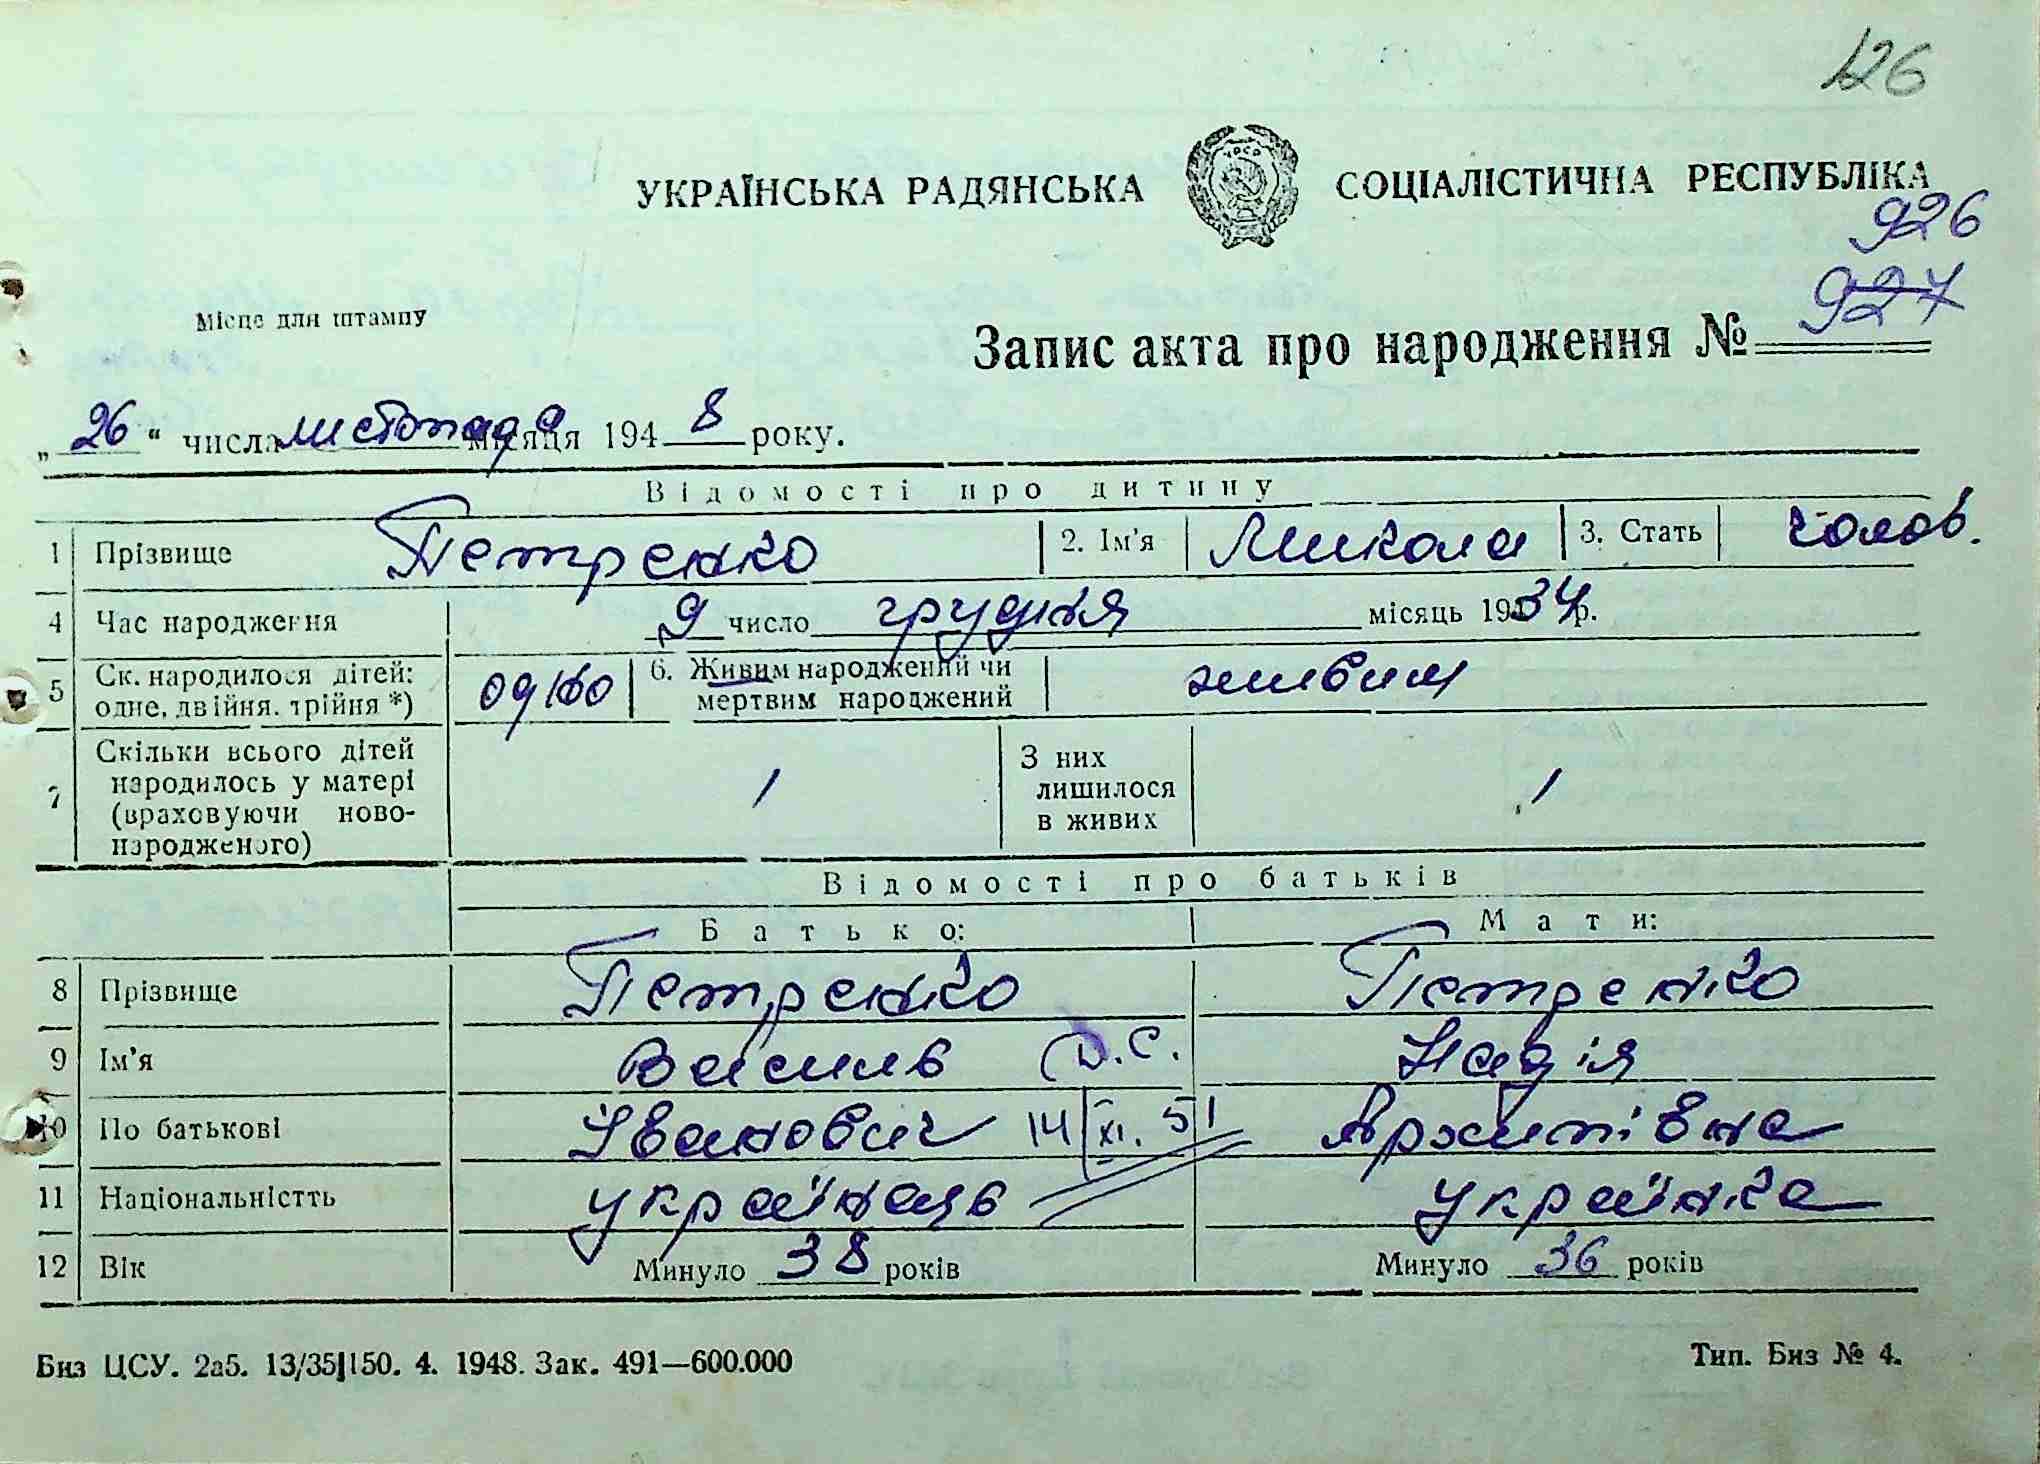 126
УКРАЇНСЬКА РАДЯНСЬКА СОЦІАЛІСТИЧНА РЕСПУБЛІКА
926
Місце для штампу
Запис акта про народження № 927
„26“ числа листопада місяця 1948 року.
Відомості про дитину
1 Прізвище Петренко 2. Ім'я Микола 3. Стать чолов.
4 Час народження 9 число грудня місяць 1934 р.
5 Ск. народилося дітей: одне, двійня, трійня *) одно 6. Живим народжений чи мертвим народжений живим
7 Скільки всього дітей народилось у матері (враховуючи новонародженого) 1 З них лишилося в живих 1
Відомості про батьків
Батько: Мати:
8 Прізвище Петренко Петренко
9 Ім'я Василь С. Надія
10 По батькові Іванович 14/XI. 51 Архипівна
11 Національністть українець українка
12 Вік Минуло 38 років Минуло 36 років
Биз ЦСУ. 2а5. 13/35|150. 4. 1948. Зак. 491—600.000 Тип. Биз № 4.